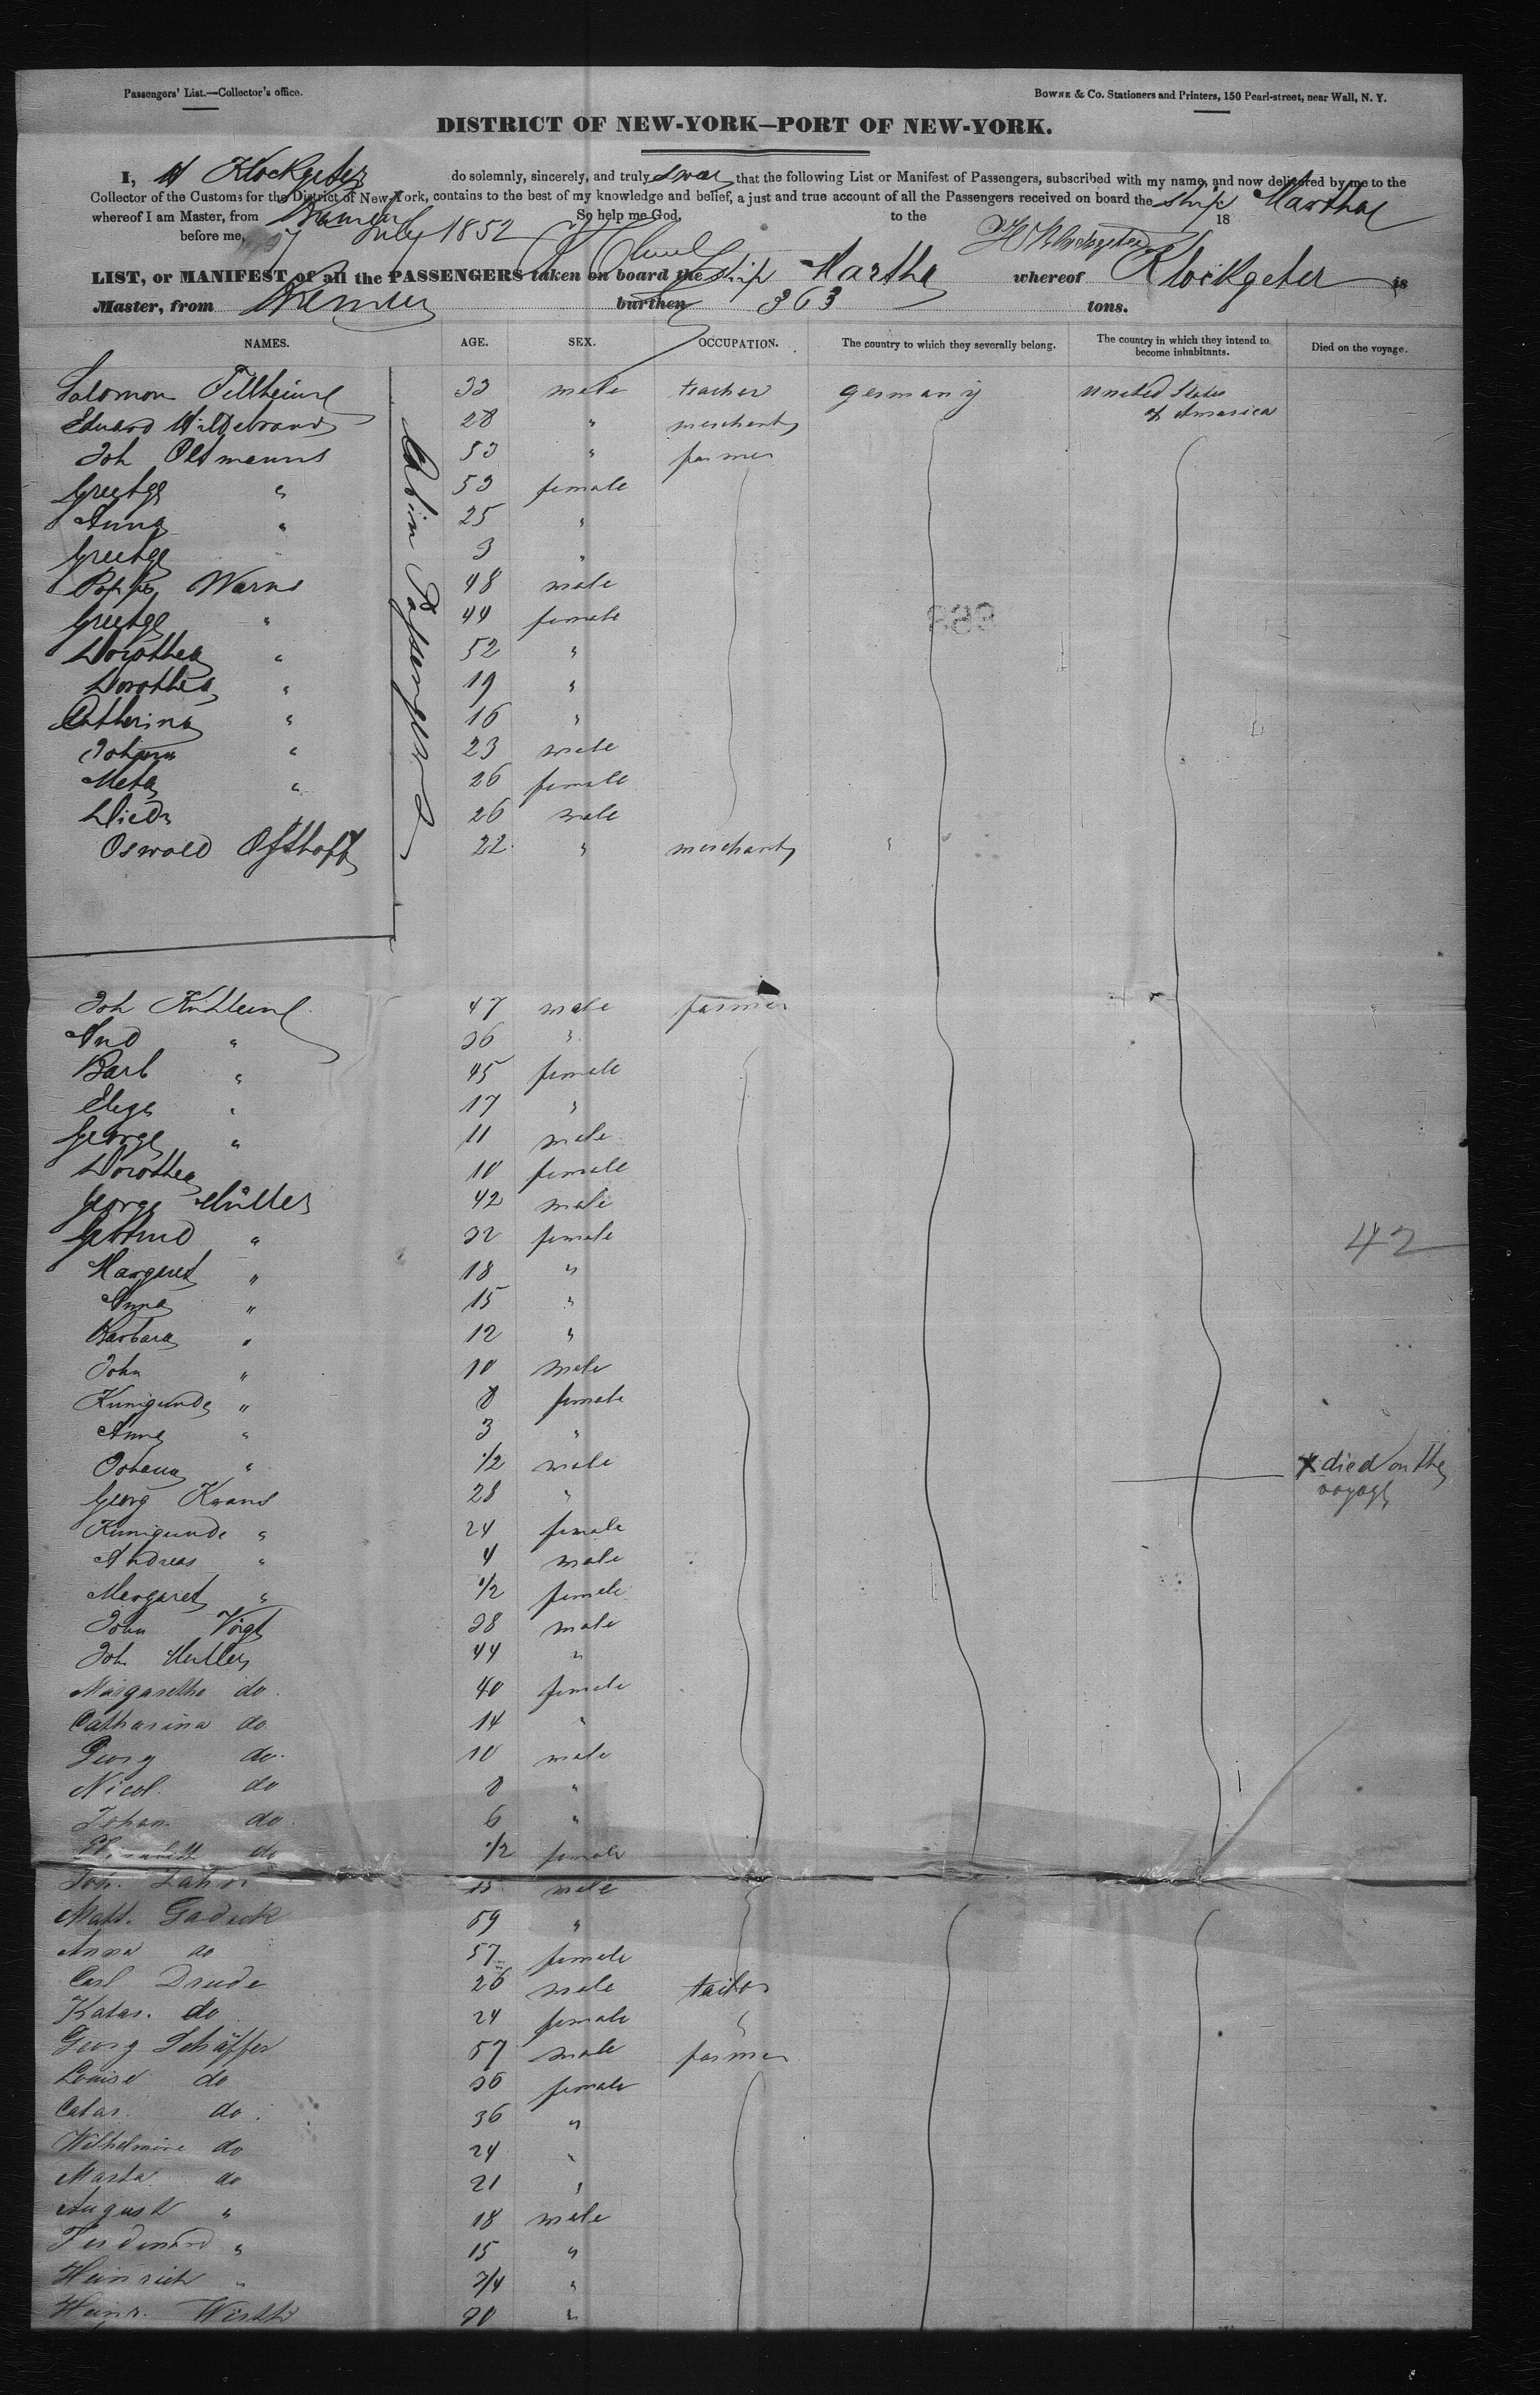 Passengers' List.—Collector's office.
BOWNE & Co. Stationers and Printers, 150 Pearl-street, near Wall, N. Y.
DISTRICT OF NEW-YORK—PORT OF NEW-YORK.
I, H Klockgeter do solemnly, sincerely, and truly swear that the following List or Manifest of Passengers, subscribed with my name, and now delivered by me to the
Collector of the Customs for the District of New-York, contains to the best of my knowledge and belief, a just and true account of all the Passengers received on board the Ship Martha
whereof I am Master, from Bremen So help me God, to the 18
before me, July 1852
LIST, or MANIFEST of all the PASSENGERS taken on board the Ship Martha whereof Klockgeter is
Master, from Bremen burthen 363 tons.
NAMES. AGE. SEX. OCCUPATION. The country to which they severally belong. The country in which they intend to become inhabitants. Died on the voyage.
Cabin Passengers
Salomon 33 male teacher germany united States
of America
Eduard Hildebrand 28 " merchant
Joh Oltmanns 53 " farmer
Greetge " 53 female
Anna " 25 "
Greetge 3 "
Warns 48 male
Greetge " 44 female
Dorothea " 52 "
Dorothea " 19 "
Catherina " 16 "
Johann " 23 male
Meta " 26 female
Died 26 male
Oswald Osthoff 22 " merchant "
Joh 47 male farmer
And " 36 "
Barb " 45 female
" 17 "
George " 11 male
Dorothea 10 female
George Müller 42 male
" 32 female
Margaret " 18 "
Anna " 15 "
Barbara " 12 "
John " 10 male
Kunigunde " 8 female
Anna " 3 "
Johann " 1/2 male x died on the
voyage
Georg Krans 28 "
Kunigunde " 24 female
Andreas " 4 male
Margaret " 1/2 female
John Voigt 38 male
Joh Muller 44 "
Margarethe do 40 female
Catharina do 14 "
Georg do. 10 male
Nicol. do 8 "
Johan. do. 6 "
Elisabeth do 1/2 female
Joh. Zahn male
Matt. Gadeck 59 "
Anna do 57 female
Carl Drude 26 male tailor
Katar. do 24 female "
Georg Schäffer 57 male farmer
Louise do 36 female
Catar. do. 36 "
Wilhelmine do 24 "
Marta do 21 "
August " 18 male
Ferdinand " 15 "
Heinrich " 3/4 "
Heinr. Wirth "
42